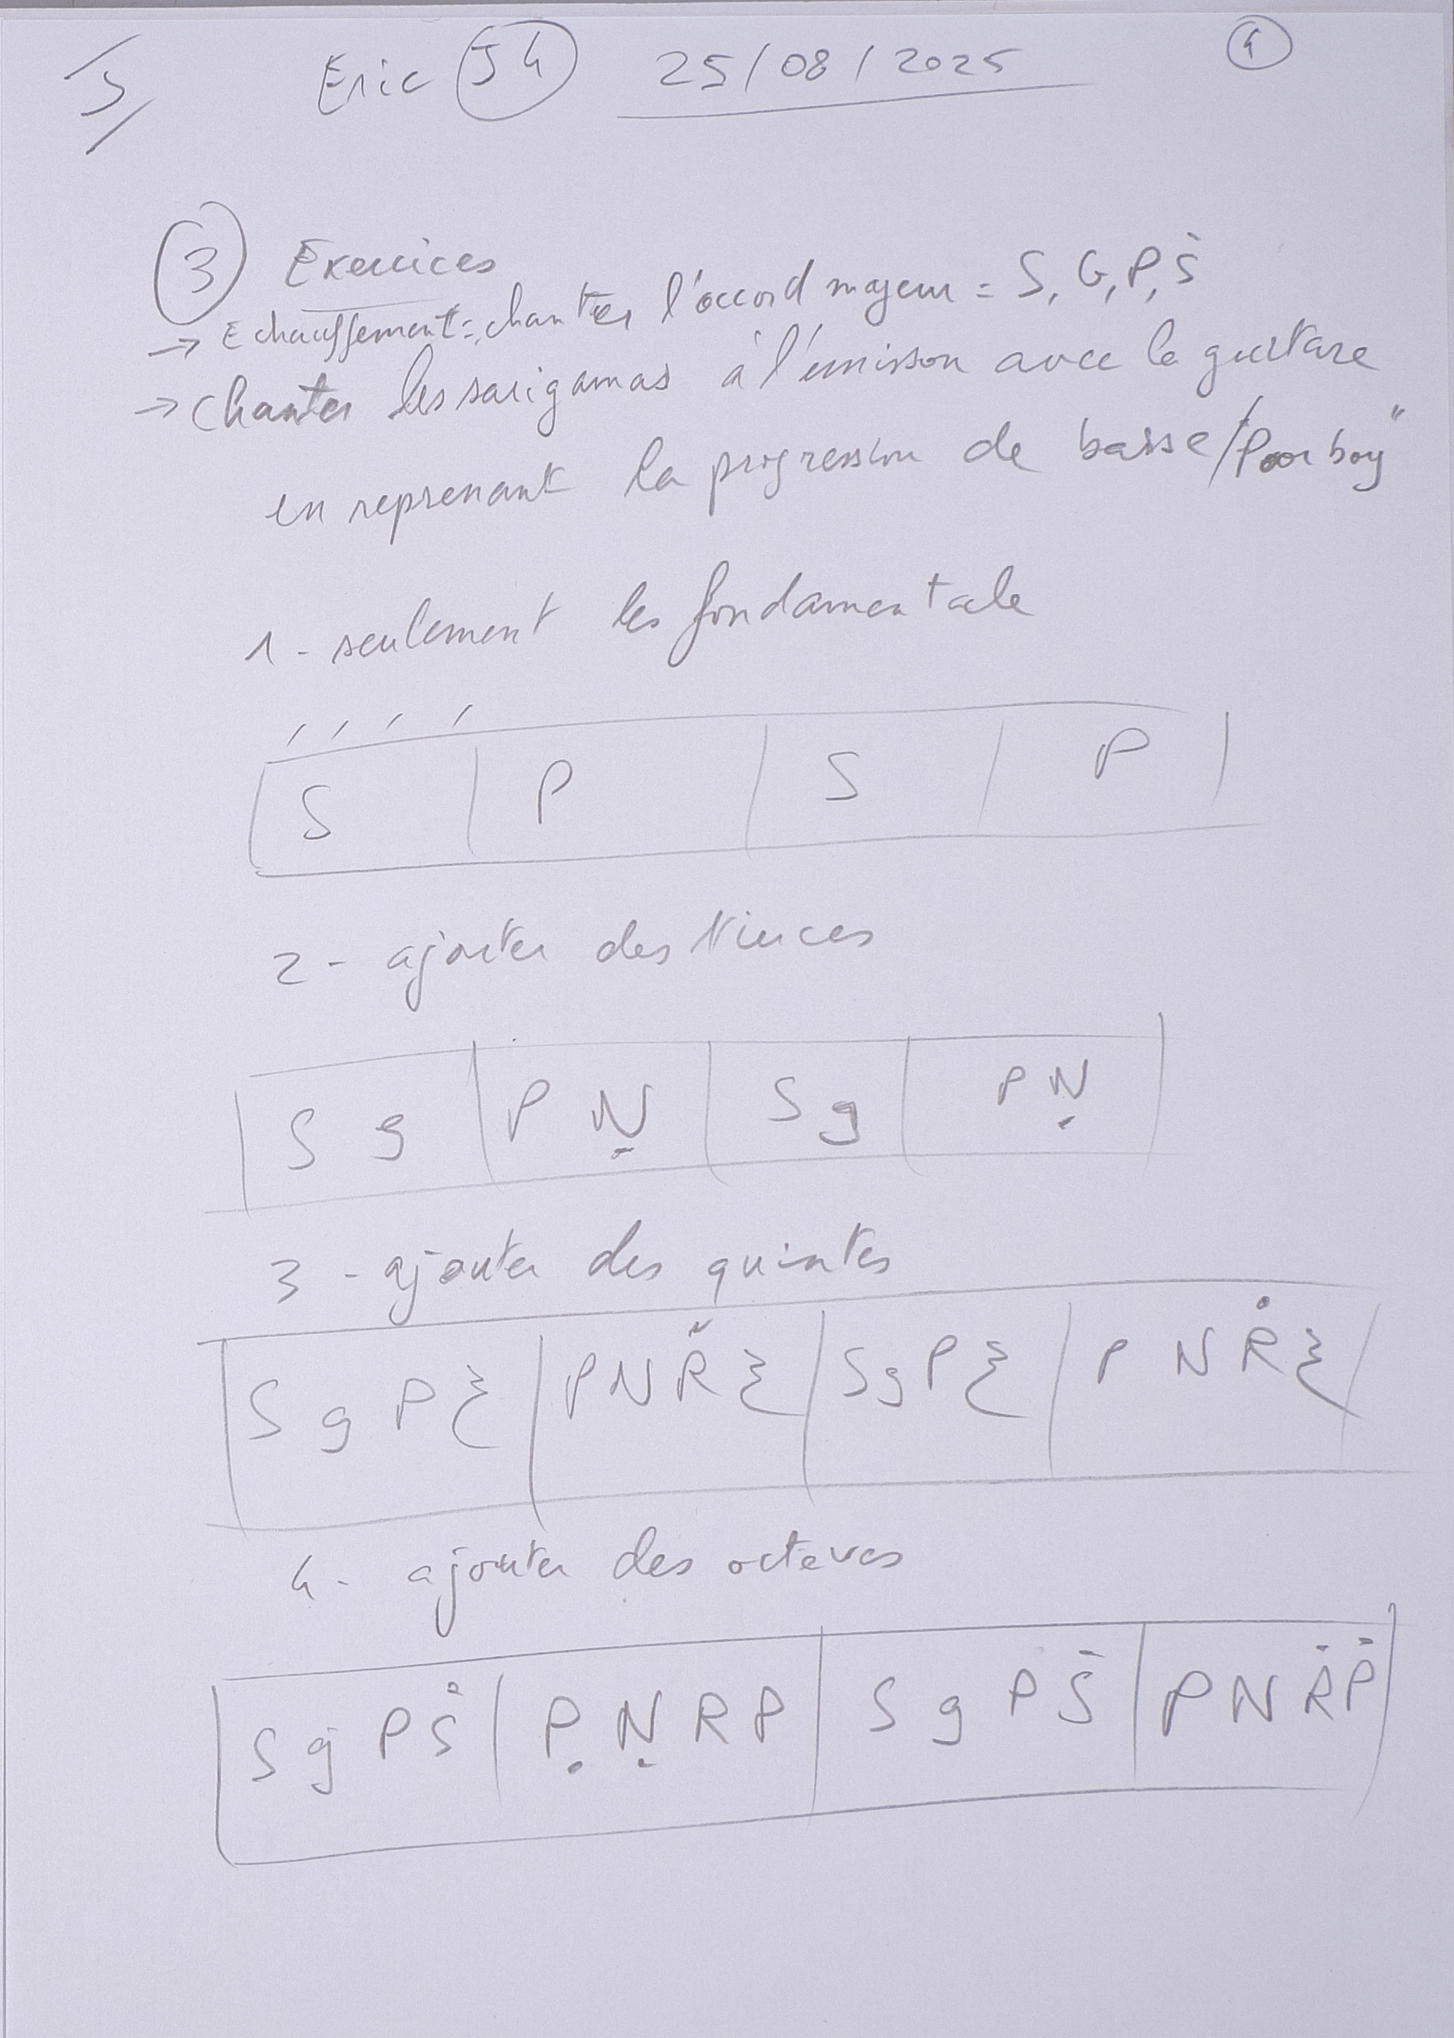 5/ Eric J4 25/08/2025 4
3 Exercices
→ Echauffement = chanter l'accord majeur = S, G, P, Ṡ
→ Chanter les sarigamas à l'unisson avec la guitare
en reprenant la progression de basse / "Poor boy"
1 - seulement les fondamentale
S | P | S | P |
2 - ajouter des tierces
| S g | P Ṇ | S g | P Ṇ |
3 - ajouter des quintes
| S g P ξ | P N Ṙ ξ | S g P ξ | P N Ṙ ξ |
4 - ajouter des octaves
| S g P Ṡ | P̣ Ṇ R P | S g P Ṡ | P N Ṙ Ṗ |